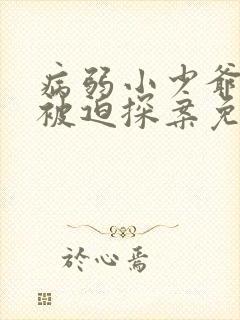 病弱小少爷
被迫探案免
於心焉